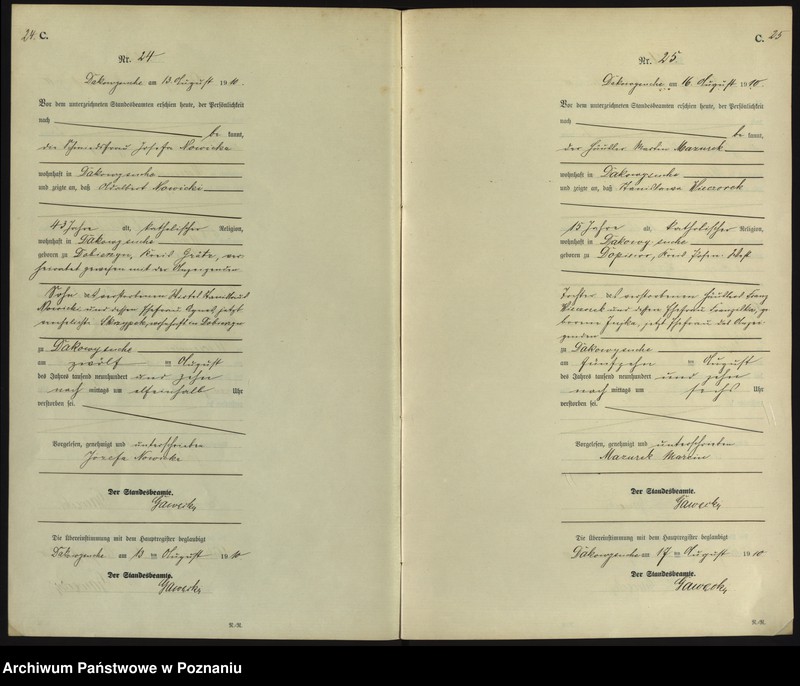 24. C.
Nr. 24
Dakowymokre am 13. August 1910.
Vor dem unterzeichneten Standesbeamten erschien heute, der Persönlichkeit
nach be kannt,
die Schmiedsfrau Josefa Nowicka
wohnhaft in Dakowymokre
und zeigte an, daß Adalbert Nowicki
43 Jahre alt, katholischer Religion,
wohnhaft in Dakowymokre
geboren zu Dobieżyn, Kreis Grätz, ver
heiratet gewesen mit der Anzeigenden
Sohn des verstorbenen
Nowicki und dessen Ehefrau Agnes, jetzt
verehelichte wohnhaft in Dobieżyn
zu Dakowymokre
am zwölf ten August
des Jahres tausend neunhundert und zehn
nach mittags um elfeinhalb Uhr
verstorben sei.
Vorgelesen, genehmigt und unterschrieben
Jozefa Nowicka
Der Standesbeamte.
Gawecky
Die Übereinstimmung mit dem Hauptregister beglaubigt
Dakowymokre am 13 ten August 1910
Der Standesbeamte.
Gawecky
R.-R.
C. 25
Nr. 25
Dakowymokre am 16. August 1910.
Vor dem unterzeichneten Standesbeamten erschien heute, der Persönlichkeit
nach be kannt,
der Häusler Martin Mazurek
wohnhaft in Dakowymokre
und zeigte an, daß Stanislawa Wieczorek
15 Jahre alt, katholischer Religion,
wohnhaft in Dakowymokre
geboren zu Kreis Posen West
Tochter des verstorbenen Häuslers Franz
Wieczorek und dessen Ehefrau ge
borene jetzt Ehefrau des Anzei
genden
zu Dakowymokre
am fünfzehn ten August
des Jahres tausend neunhundert und zehn
nach mittags um sechs Uhr
verstorben sei.
Vorgelesen, genehmigt und unterschrieben
Mazurek Marcin
Der Standesbeamte.
Gawecky
Die Übereinstimmung mit dem Hauptregister beglaubigt
Dakowymokre am 17 ten August 1910
Der Standesbeamte.
Gawecky
R.-R.
Archiwum Państwowe w Poznaniu